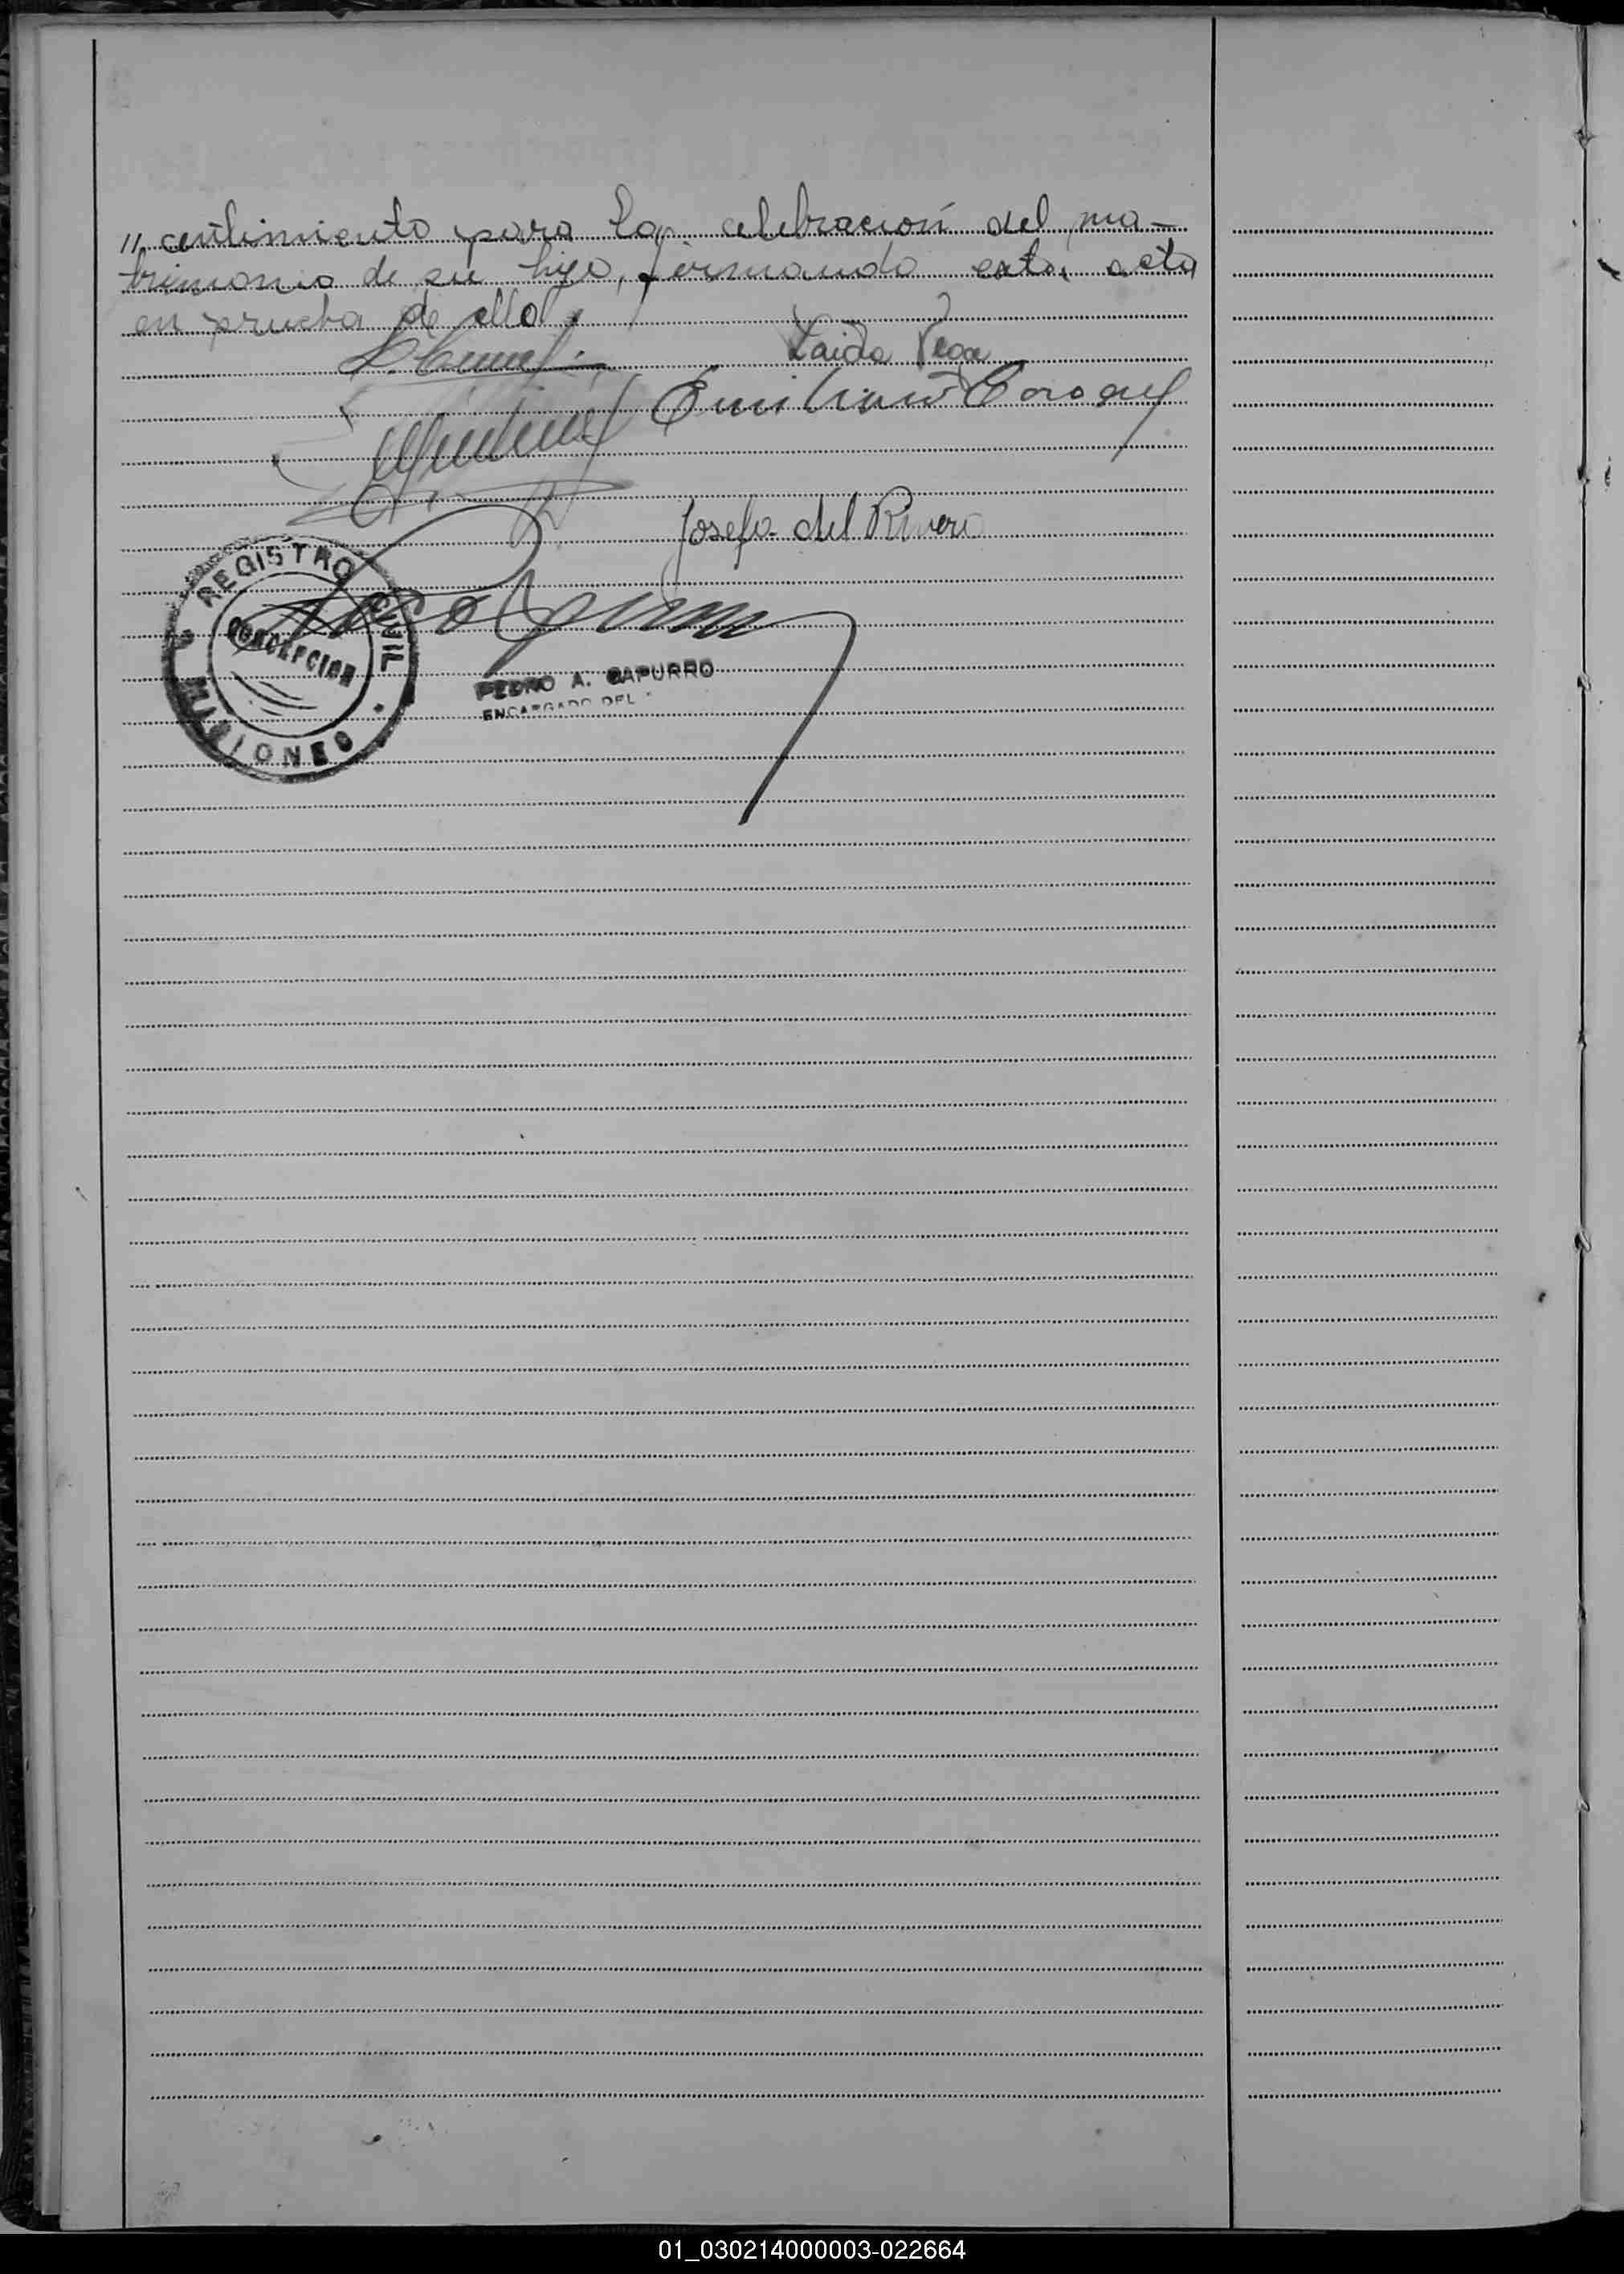 " centimiento para la celebración del ma-
trimonio de su hijo, firmando esta acta
en prueba de ello.
Zaida Vega
Emiliano
Josefa del Rivero
REGISTRO CIVIL
CONCEPCION
MISIONES
PEDRO A. CAPURRO
ENCARGADO DEL
01_030214000003-022664